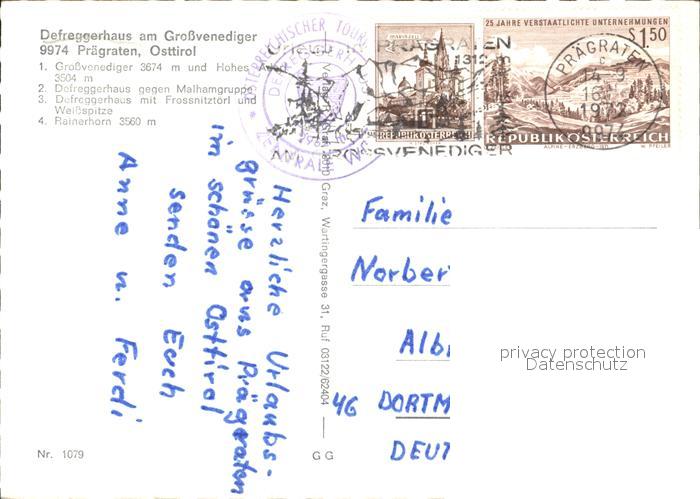 Defreggerhaus am Großvenediger
9974 Prägraten, Osttirol
1. Großvenediger 3674 m und Hohes
3504 m
2. Defreggerhaus gegen Malhamgruppe
3. Defreggerhaus mit Frossnitztörl und
Weißspitze
4. Rainerhorn 3560 m
Herzliche Urlaubs-
grüsse aus Prägraten
im schönen Osttirol
senden Euch
Anne u. Ferdi
Nr. 1079
GG
Graz, Wartingergasse 31, Ruf 03122/62404
PRÄGRATEN
1312 m
AM GROSSVENEDIGER
MARIAZELL
REPUBLIK ÖSTERREICH
25 JAHRE VERSTAATLICHTE UNTERNEHMUNGEN
S 1.50
REPUBLIK ÖSTERREICH
ALPINE - ERZBERG
W. PFEILER
PRÄGRATEN
Familie
Norber
Alb
46 DORTM
DEUT
privacy protection
Datenschutz